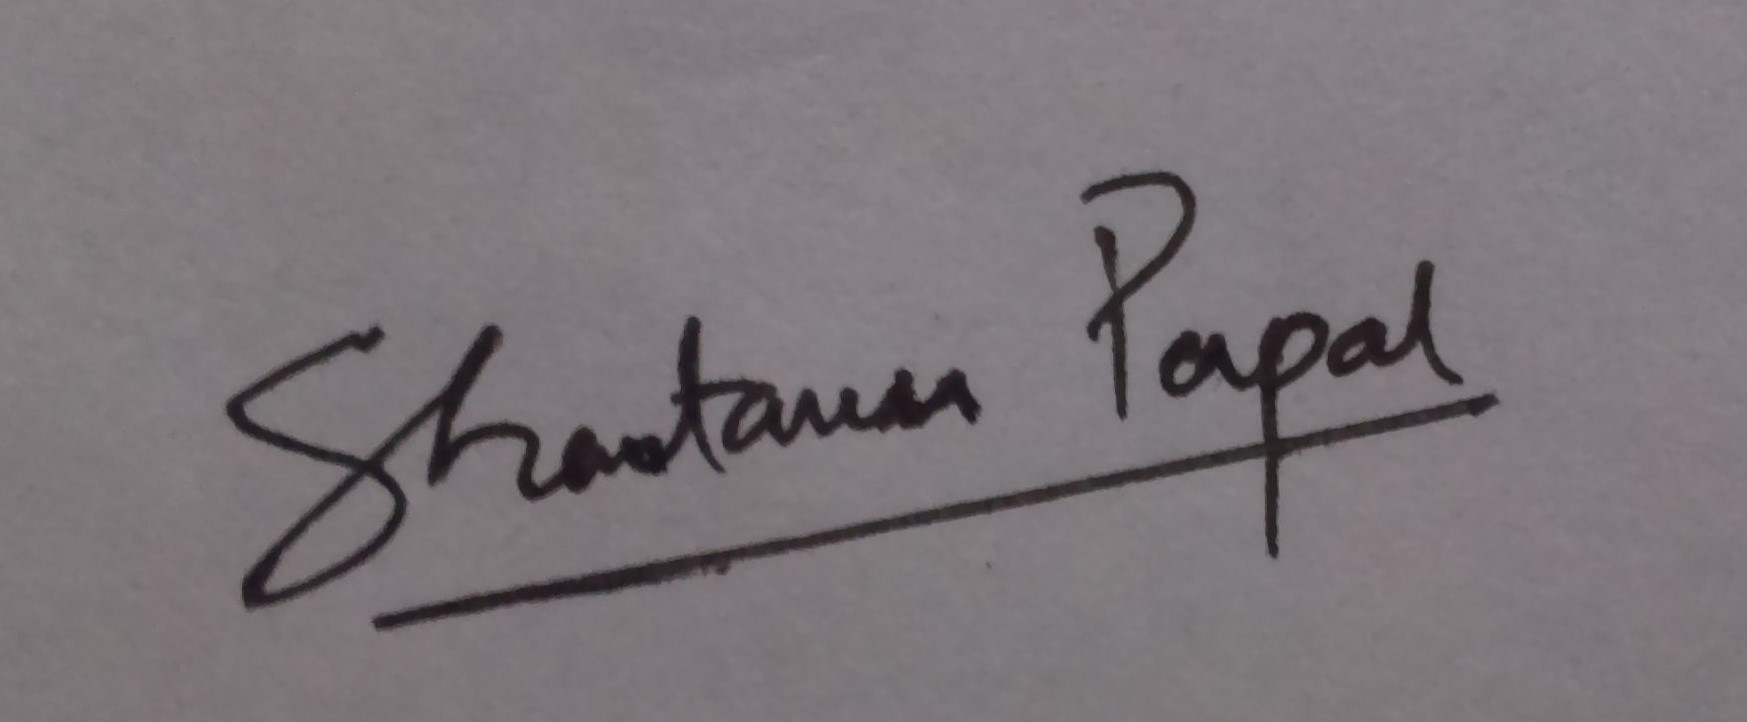 Shantanu Papal